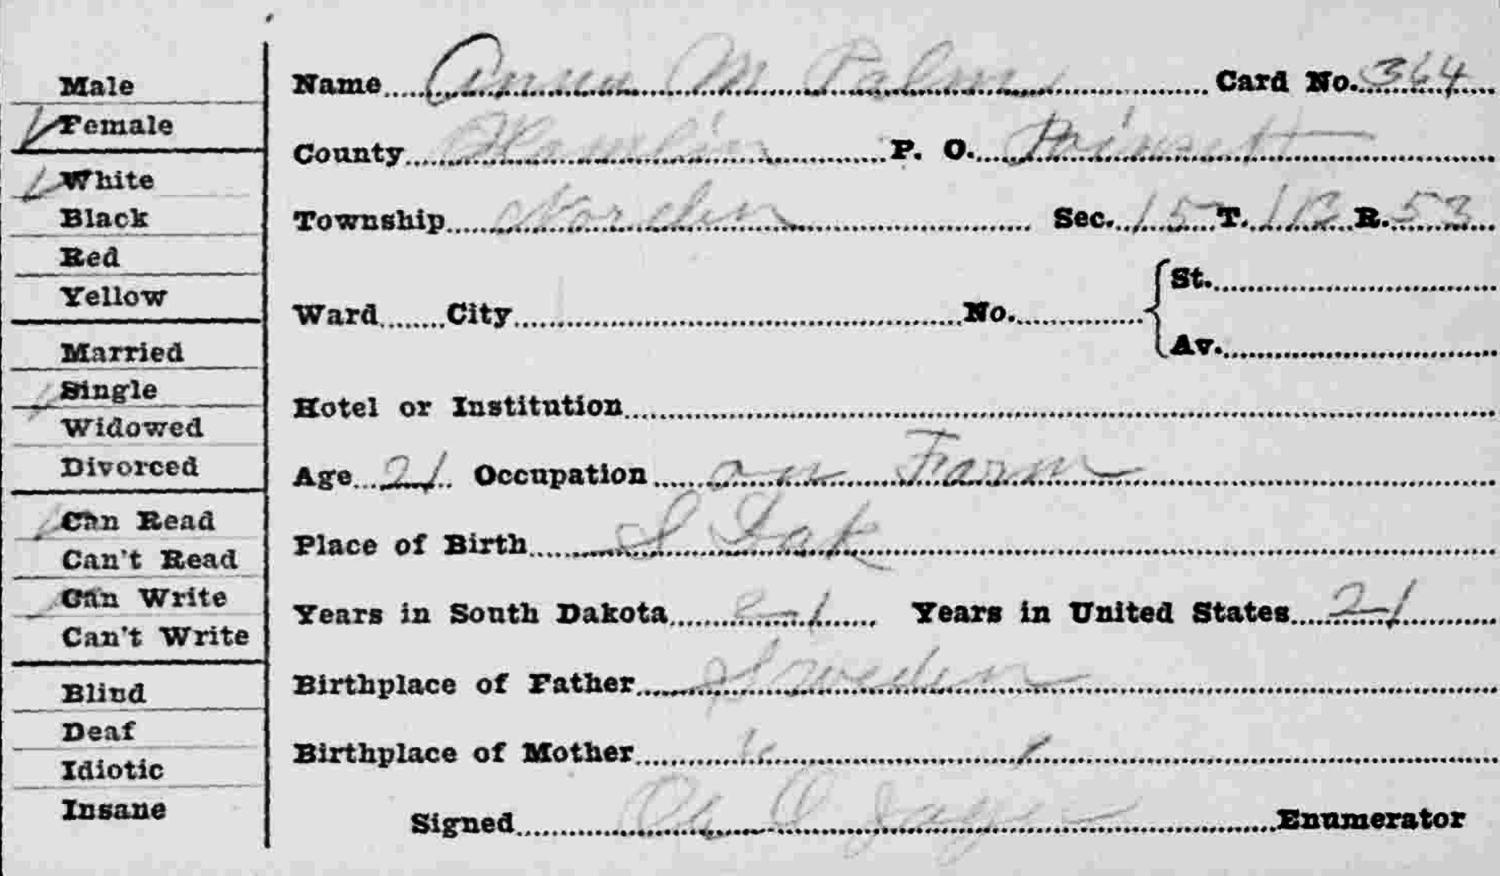 Male
Female
White
Black
Red
Yellow
Married
Single
Widowed
Divorced
Can Read
Can't Read
Can Write
Can't Write
Blind
Deaf
Idiotic
Insane
Name Anna M Palm Card No. 364
County Hamlin P. O. Poinsett
Township Norden Sec. 15 T. 113 R. 53
Ward City No. St.
Av.
Hotel or Institution
Age 21 Occupation on Farm
Place of Birth S Dak
Years in South Dakota 21 Years in United States 21
Birthplace of Father Sweden
Birthplace of Mother "
Signed Ole O Enumerator